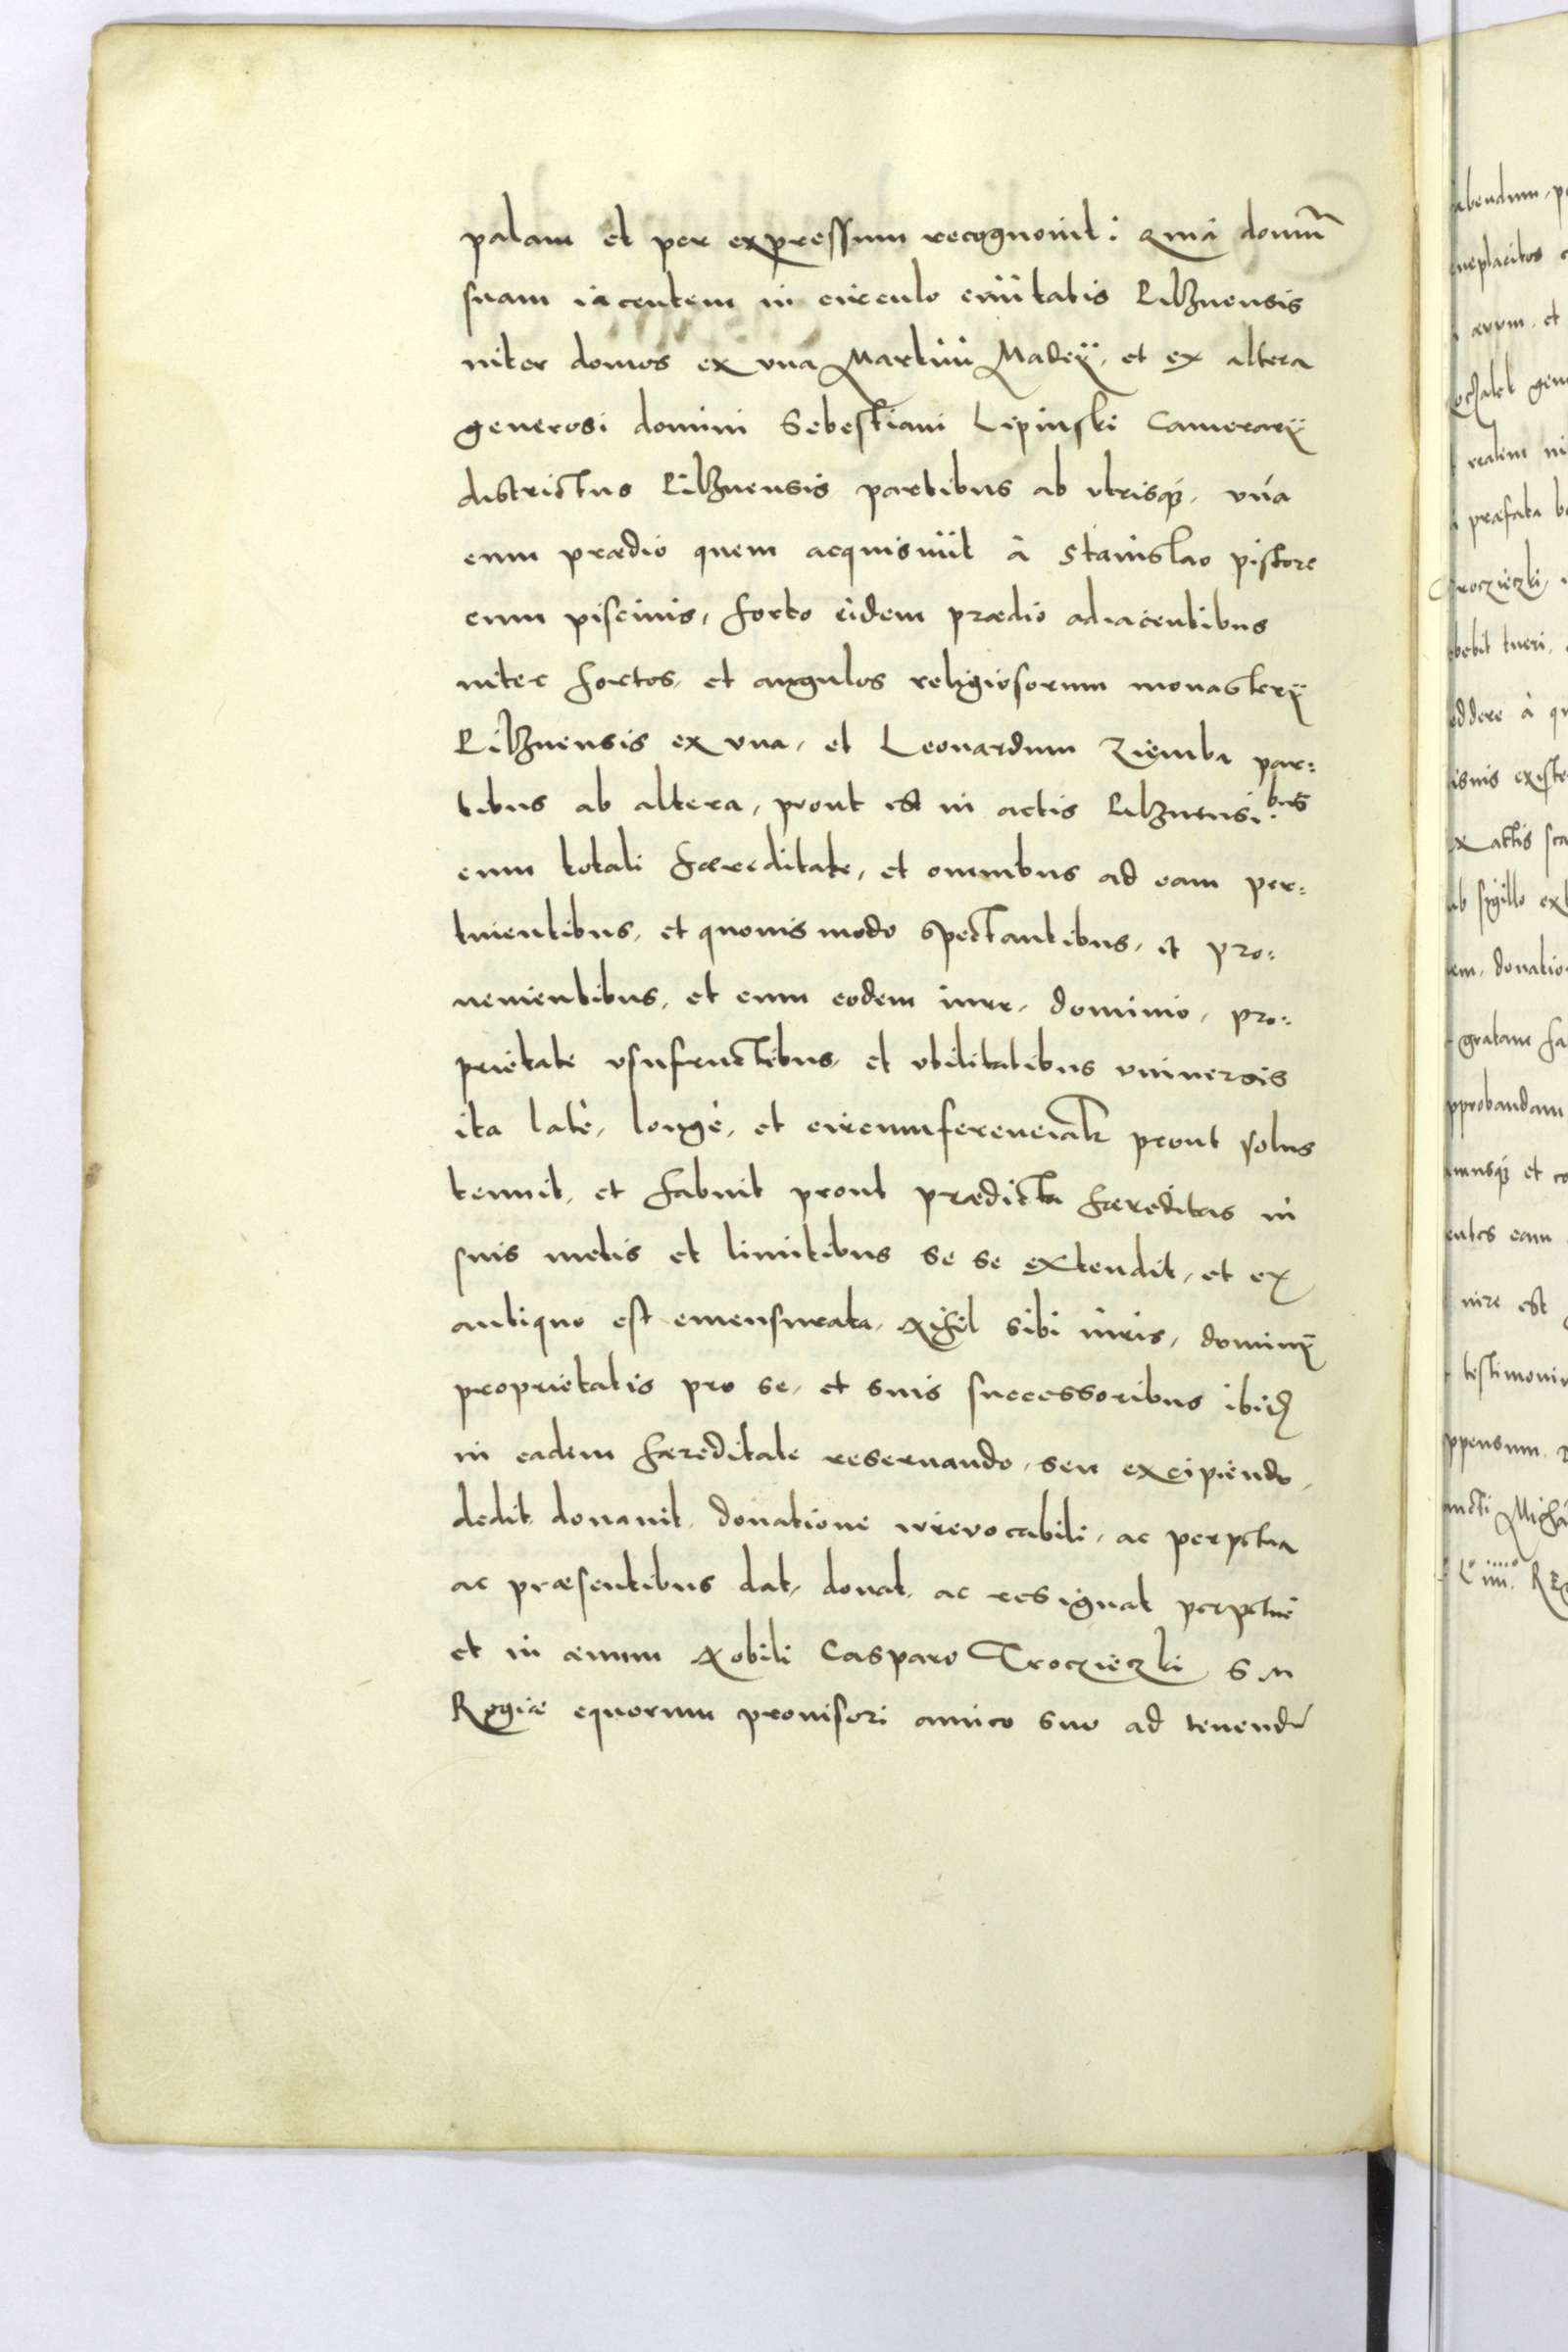 palam et per expressum recognovit: Quia domũ
suam iacentem in circulo civitatis Pilznensis
inter domos ex vna Martini Madeÿ, et ex altera
generosi domini Sebestiani Lipinski Camerarÿ
districtus Pilznensis partibus ab vtrisqꝫ, vna
cum prædio quem acquisivit à Stanislao pistore
cum piscinis, horto eidem prædio adiacentibus
inter hortos, et angulos religiosorum monasterÿ
Pilznensis ex vna, et Leonardum Ziemba par:
tibus ab altera, prout est in actis Pilznensi.bus
cum totali hæreditate, et omnibus ad eam per:
tinentibus, et quovis modo spectantibus, et pro:
uenientibus, et cum eodem iure, dominio, pro:
prietate vsufructibus, et vtilitatibus vniversis
ita latè, longè, et circumferencialr prout solus
tenuit, et habuit prout prædicta hæreditas in
suis metis et limitibus se se extendit, et ex
antiquo est emensurata, Nihil sibi iuris, dominÿ
proprietatis pro se, et suis successoribus ibidẽ
in eadem hæreditate reservando, seu excipiendo,
dedit, donavit, donatione irrevocabili, ac perpetua
ac præsentibus dat, donat, ac resignat perpetuè
et in ævum Nobili Casparo Troczieczki S M
Regiæ equorum provisori amico suo ad tenendũ
abendum, p
eneplacitos
ævum, et
realem in
præfata b
Troczieczki,
ebebit tueri,
eddere à qu
isuis existe
ex actis
ub sigillo ex
em, donatio
gratam ha
pprobandam
amusqꝫ et co
entes eam
iure est
testimoniu
ppensum
ancti Micha